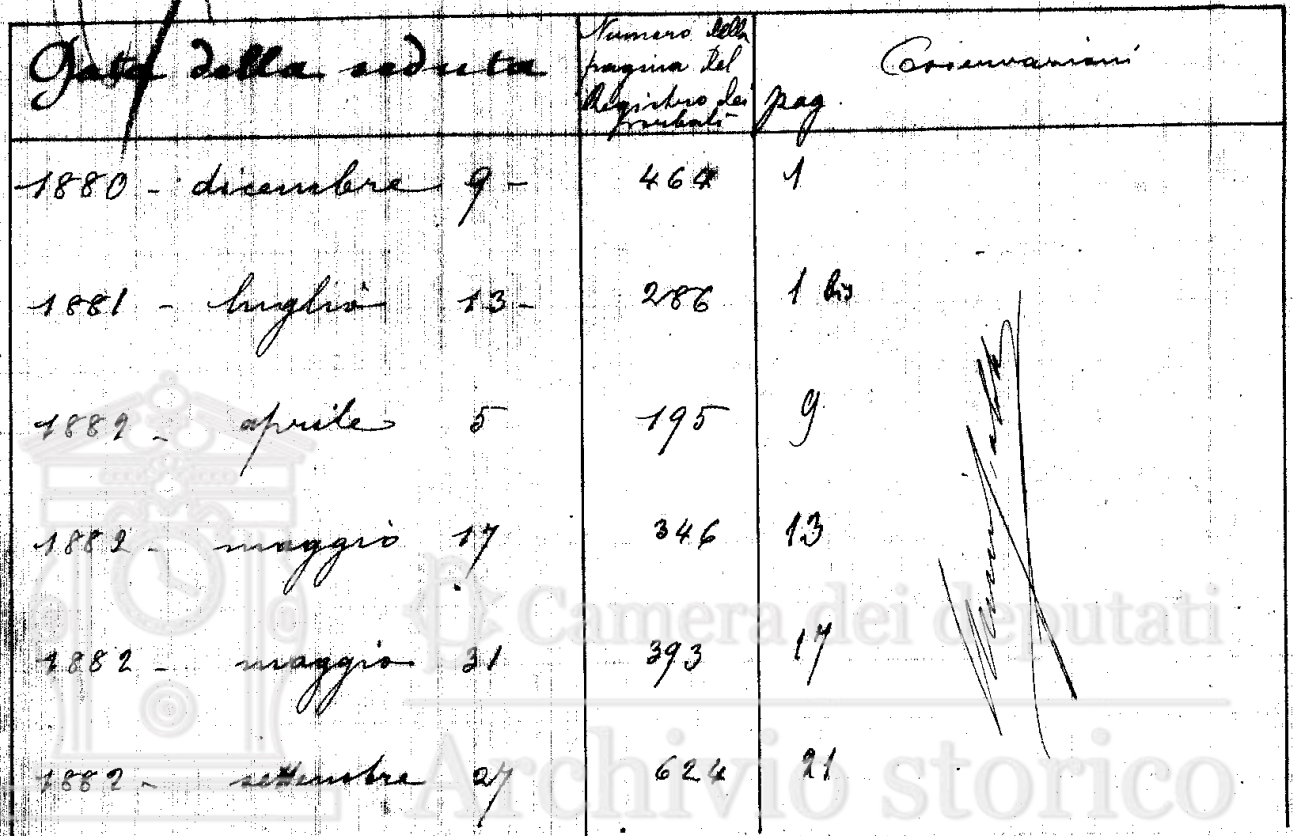 Data della seduta
Numero della
pagina del
Registro dei
verbali
pag.
Osservazioni
1880 - dicembre 9 - 464 1
1881 - luglio 13 - 286 1 bis
1882 - aprile 5 195 9
1882 - maggio 17 346 13
1882 - maggio 31 393 17
1882 - settembre 27 624 21
Camera dei deputati
Archivio storico